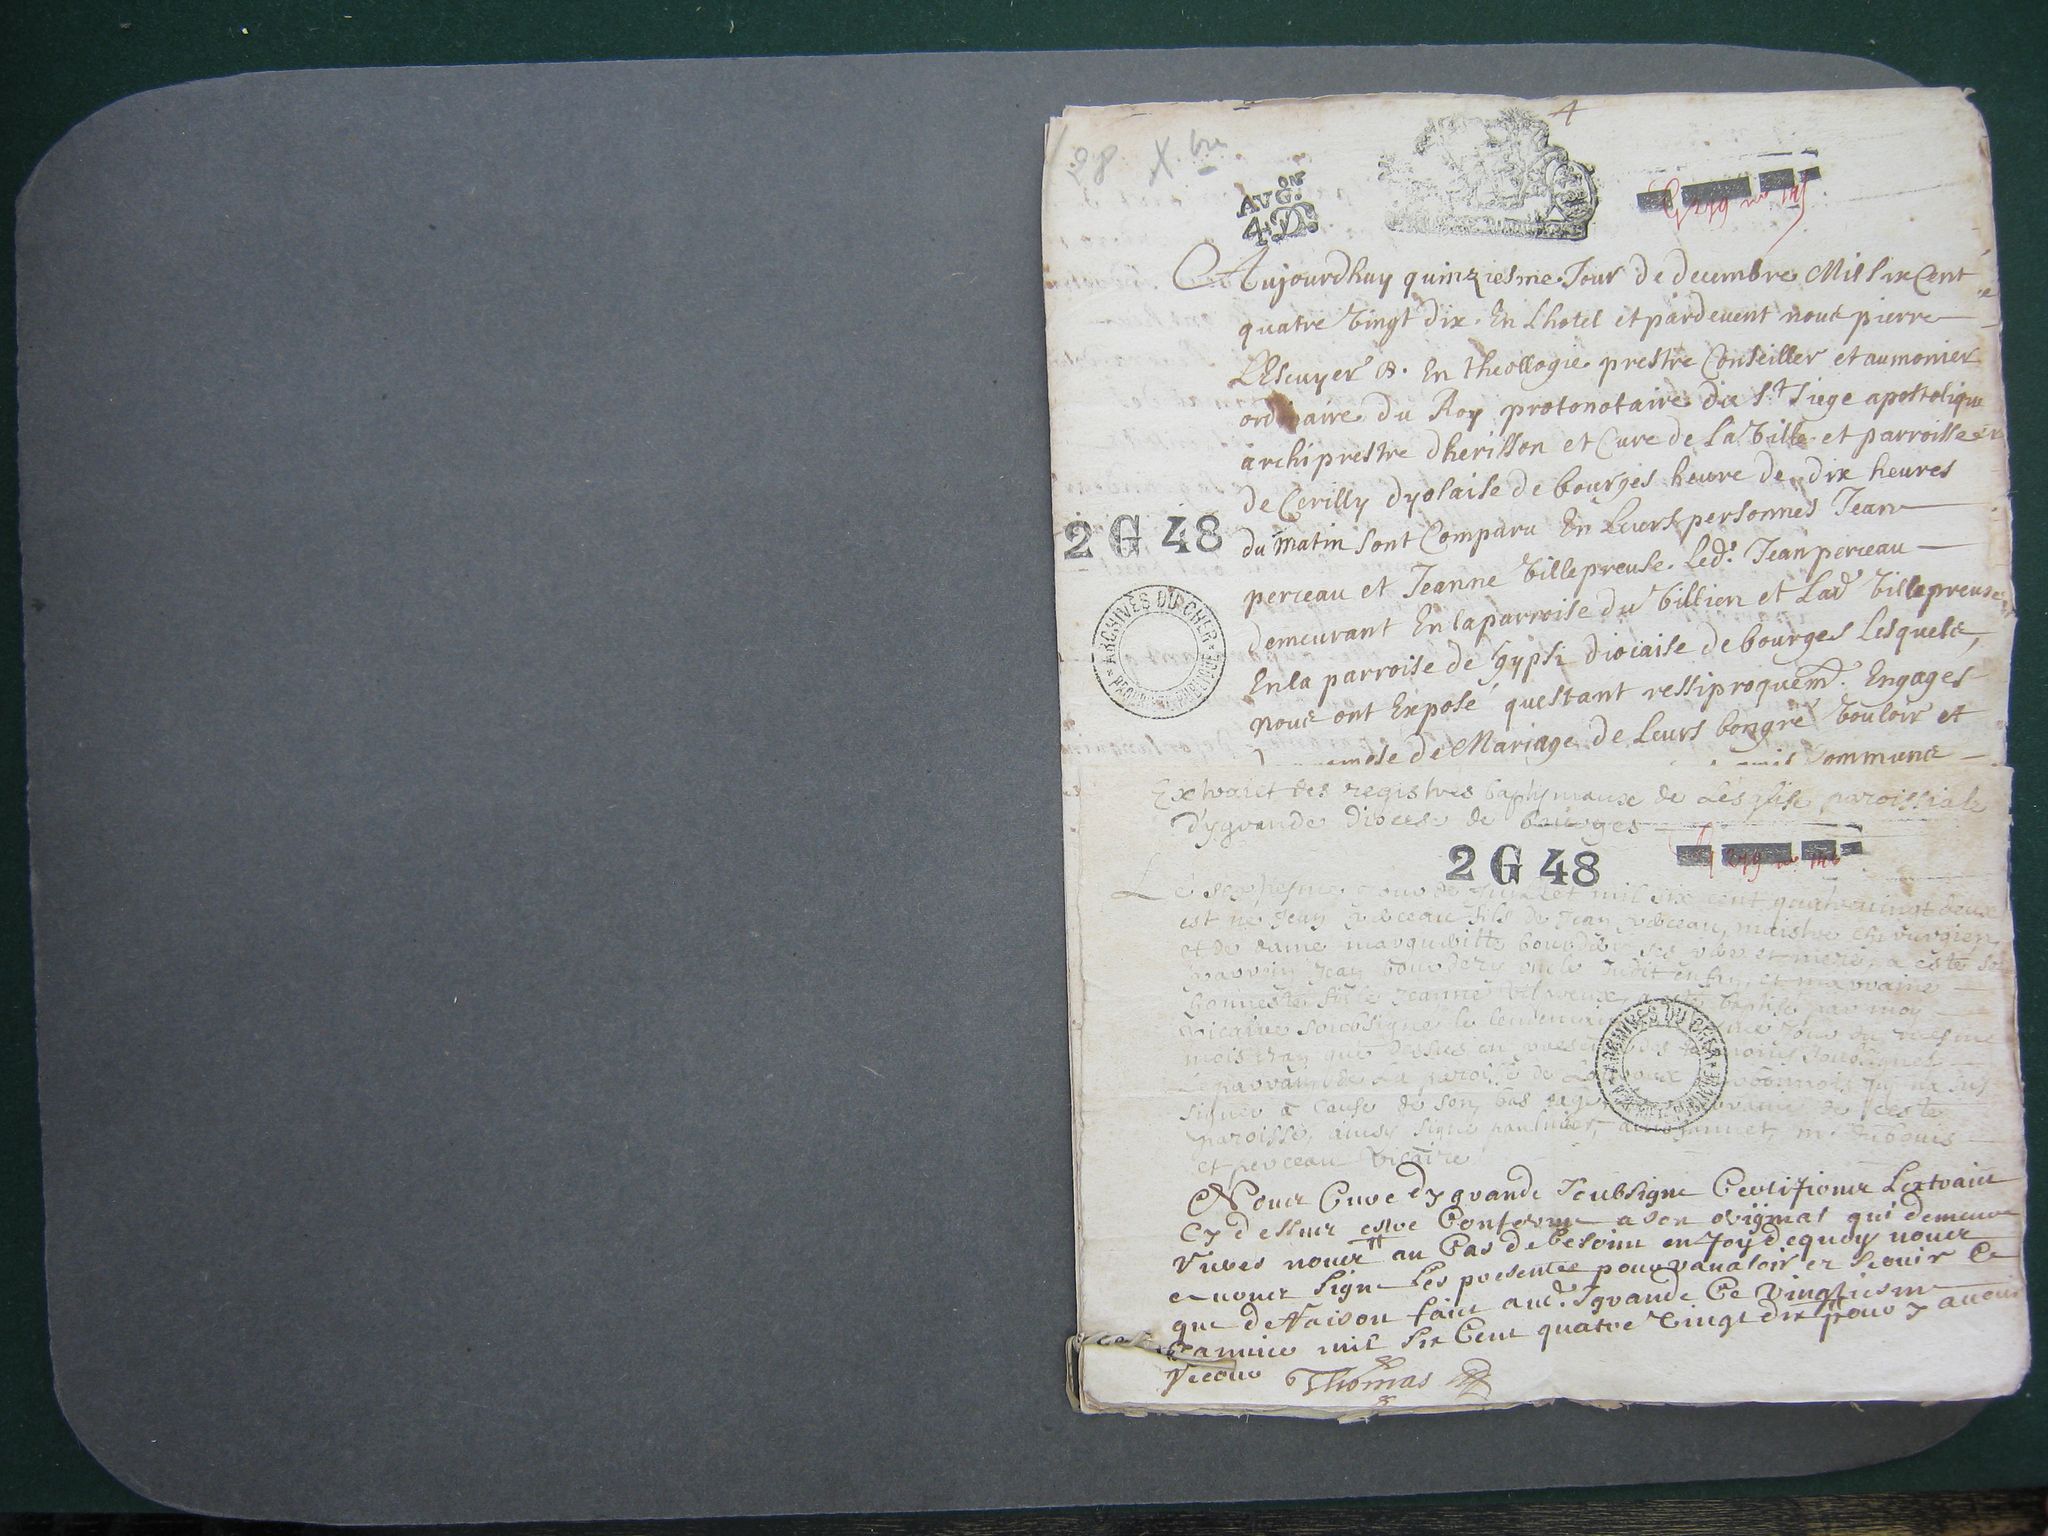 28 Xbre
4
AVG.ON
4 D.
G 279 no 145
Aujourdhuy quinziesme Jour de decembre Mil six Cent
quatre vingt dix. En Lhotel et pardevent nous pierre
LEscuyer B. En theollogie prestre Conseiller et aumonier
ordinaire du Roy protonotaire du St Siege apostolique
archiprestre dherisson et Cure de La Ville et parroisse
de Cerilly dyolaise de bourges heure de dix heures
2 G 48
du matin sont Comparu En Leurs personnes Jean
perceau et Jeanne Villepreuse. Led. Jean perceau
demeurant En la parroise du Villien et Lad Villepreuse
En la parroise de gypsi diocaise de bourges Lesquels
nous ont Exposé questant ressiproquem. Engages
de Mariage de Leurs bongré Vouloir et
commune
ARCHIVES DU CHER
PROPRIÉTÉ PUBLIQUE
Extraict des registres baptismaux de Lesglise paroissiale
d'ygrande diocese de bourges
2 G 48
G 279 no 146
Le jour de Juillet mil six cent quatrevingt deux
est né Jean perceau fils de Jean perceau, maistre chirurgien
et de dame margueritte bourdery ses pere et mere, a esté son
parrein Jean bourdery oncle dudit enfan, et marraine
honneste fille Jeanne Vilpreux, a esté baptisé par moy
Vicaire soubsigné le lendemain Jour du mesme
mois et an que dessus en presence des temoins soubsignes
Le parrain de La paroisse de
signer a cause de son bas age de ceste
paroisse, ainsy signé m. dubouis
et perceau Vicaire
ARCHIVES DU CHER
PROPRIÉTÉ PUBLIQUE
Nous Cure dygrande soubsigne Certifions Lextrait
Cy dessus estre Conforme a son original qui demeure
Vers nous au Cas de besoins en foy dequoy nous
avons signe Les presentes pour valoir et servir Ce
que de Raison fait aud. Igrande Ce vingtiesme
Janvier mil six Cent quatre vingt dix pour y avoir
recours Thomas